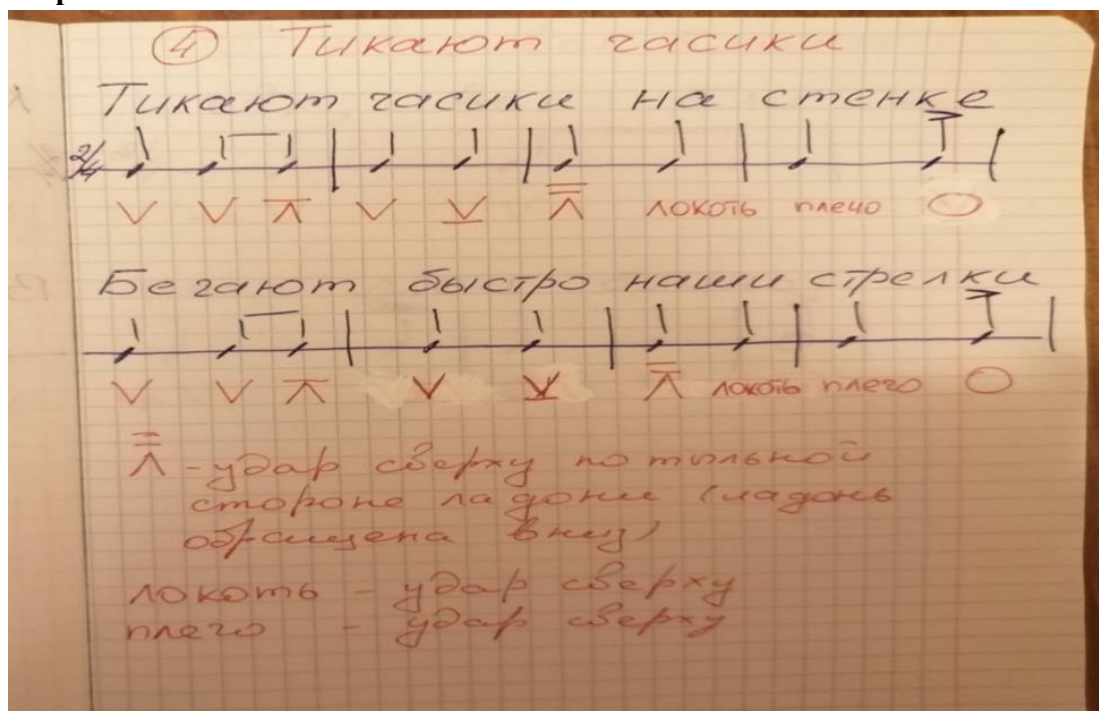 ④ Тикают часики
Тикают часики на стенке
2/4
локоть плечо
Бегают быстро наши стрелки
локоть плечо
- удар сверху по тыльной
стороне ладони (ладонь
обращена вниз)
локоть - удар сверху
плечо - удар сверху